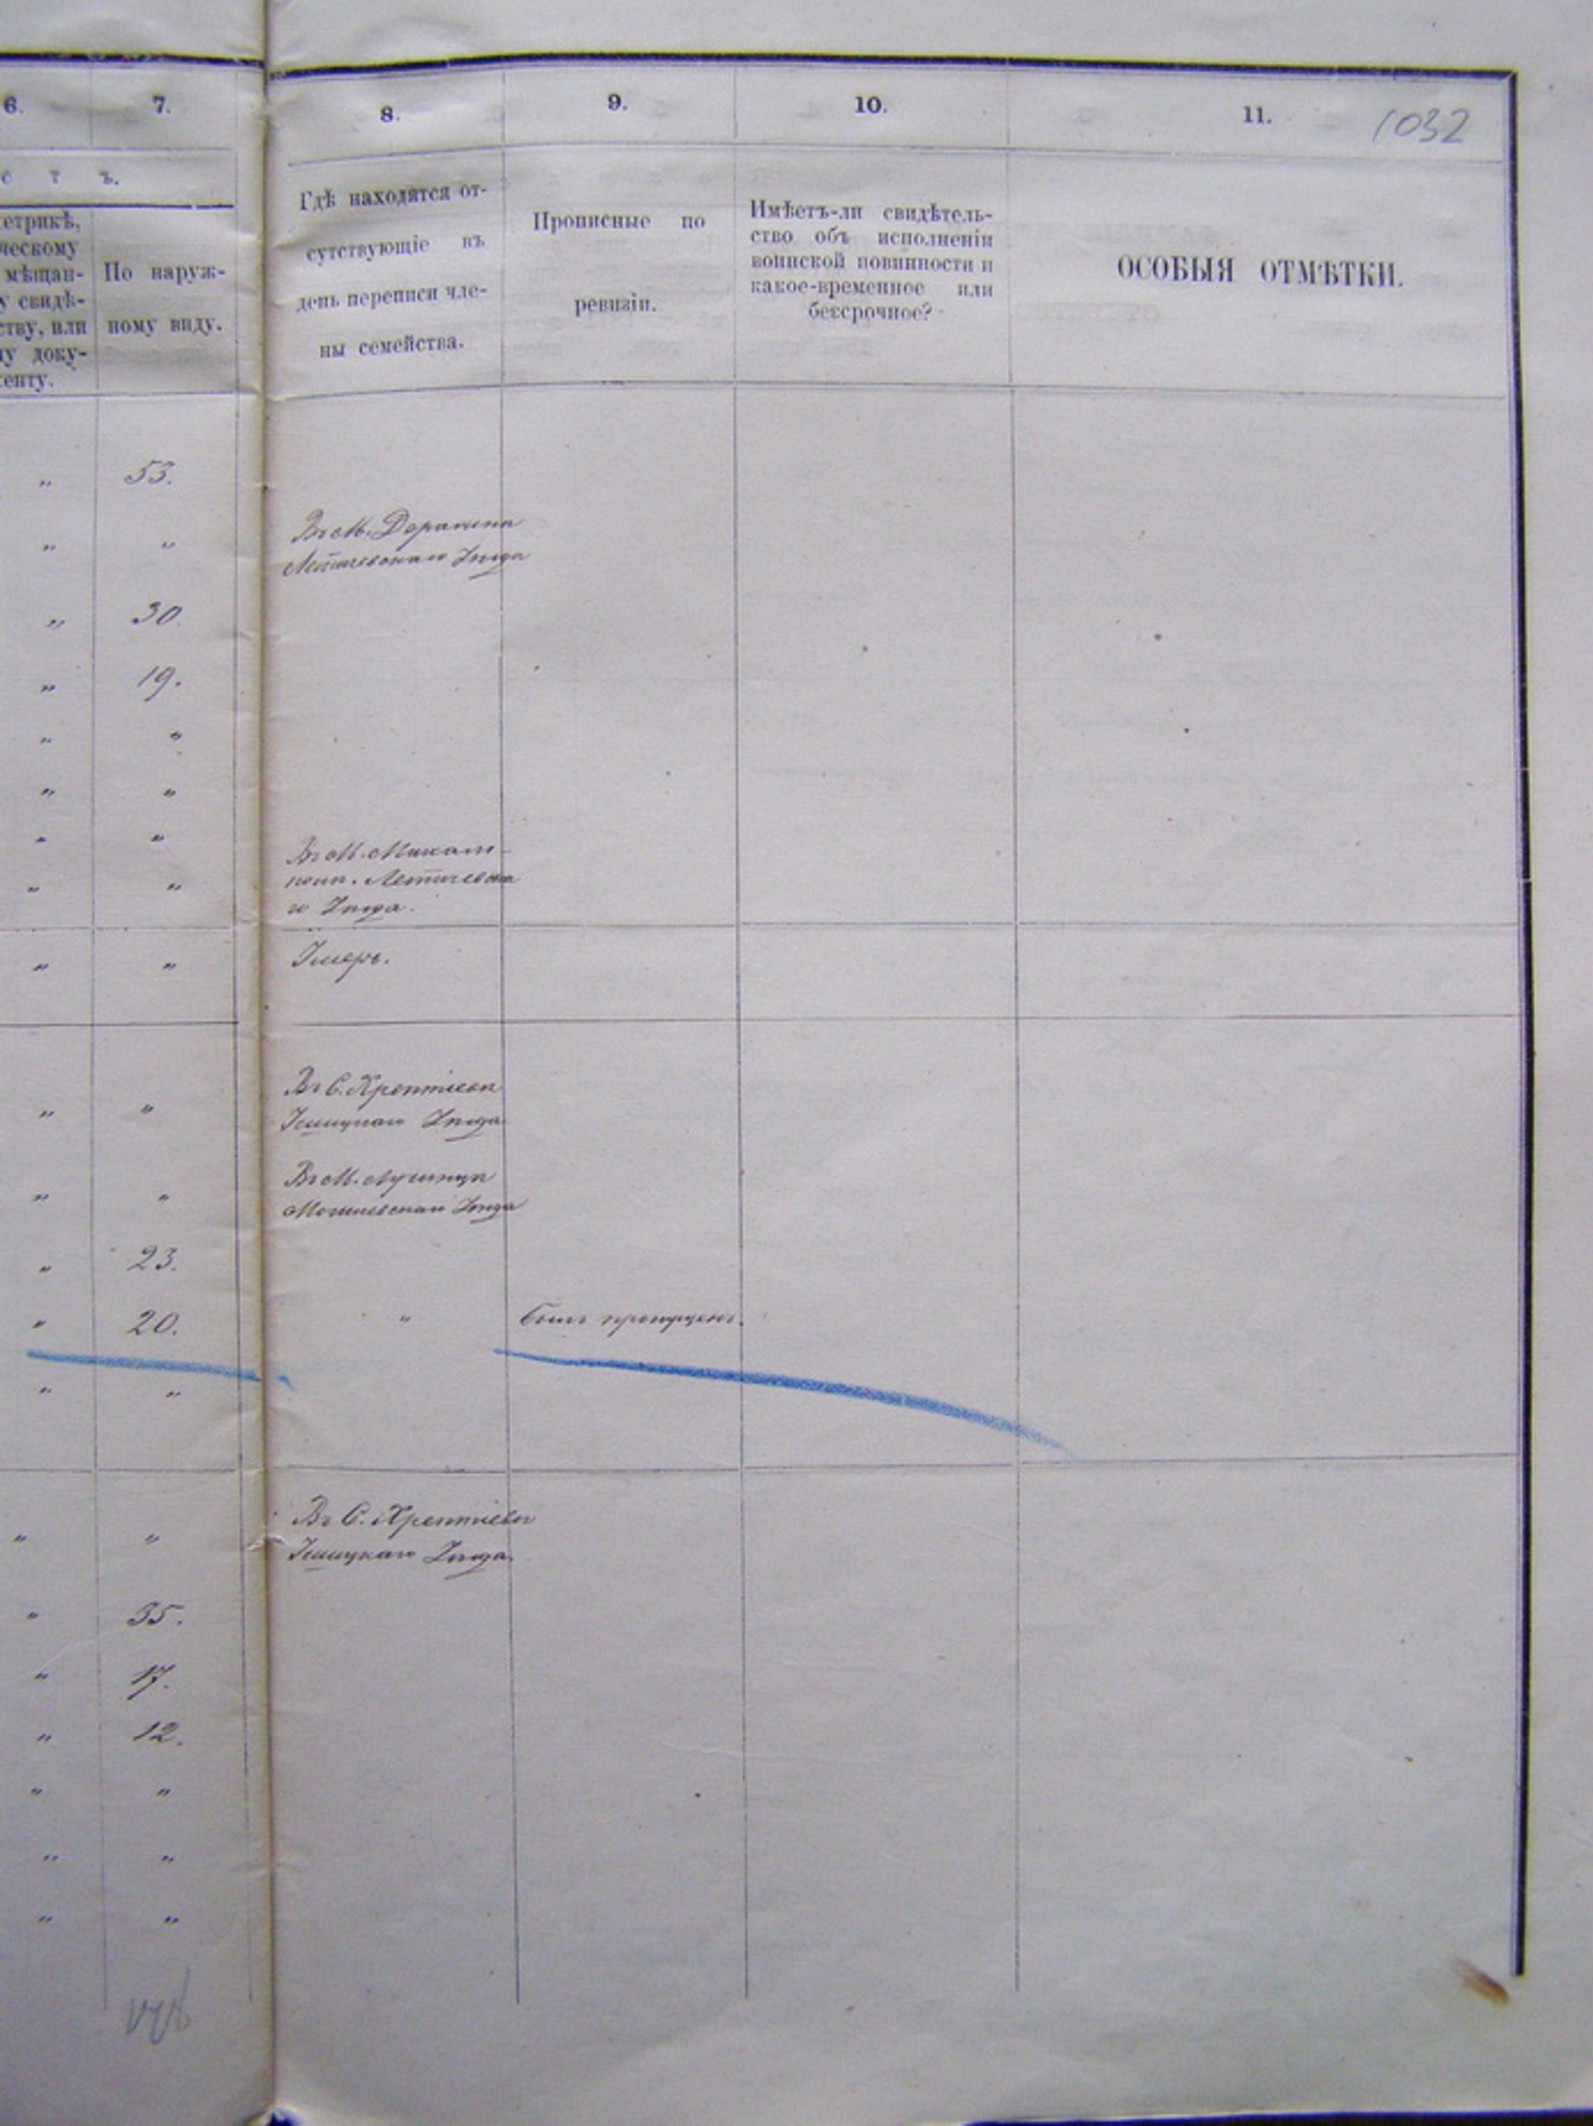 6.
7.
8.
9.
10.
11.
1032
с т ъ.
етрикѣ,
ческому
мѣщан-
у свидѣ-
ству, или
у доку-
енту.
По наруж-
ному виду.
Гдѣ находятся от-
сутствующіе въ
день переписи чле-
ны семейства.
Прописные по
ревизіи.
Имѣетъ-ли свидѣтель-
ство объ исполненіи
воинской повинности и
какое-временное или
бессрочное?
ОСОБЫЯ ОТМѢТКИ.
„ 53.
„ „
Въ М. Деражни
Летичевскаго Уѣзда
„ 30.
„ 19.
„ „
„ „
„ „
„ „
Въ М. Михам-
поли. Летичевска
го Уѣзда.
„ „ Умеръ.
„ „
Въ С. Хрептіевѣ
Ушицкаго Уѣзда
„ „
Въ М. Лучинцѣ
Могилевскаго Уѣзда
„ 23.
„ 20. „ былъ пропущенъ.
„ „
„ „
Въ С. Хрептіевѣ
Ушицкаго Уѣзда.
„ 35.
„ 17.
„ 12.
„ „
„ „
„ „